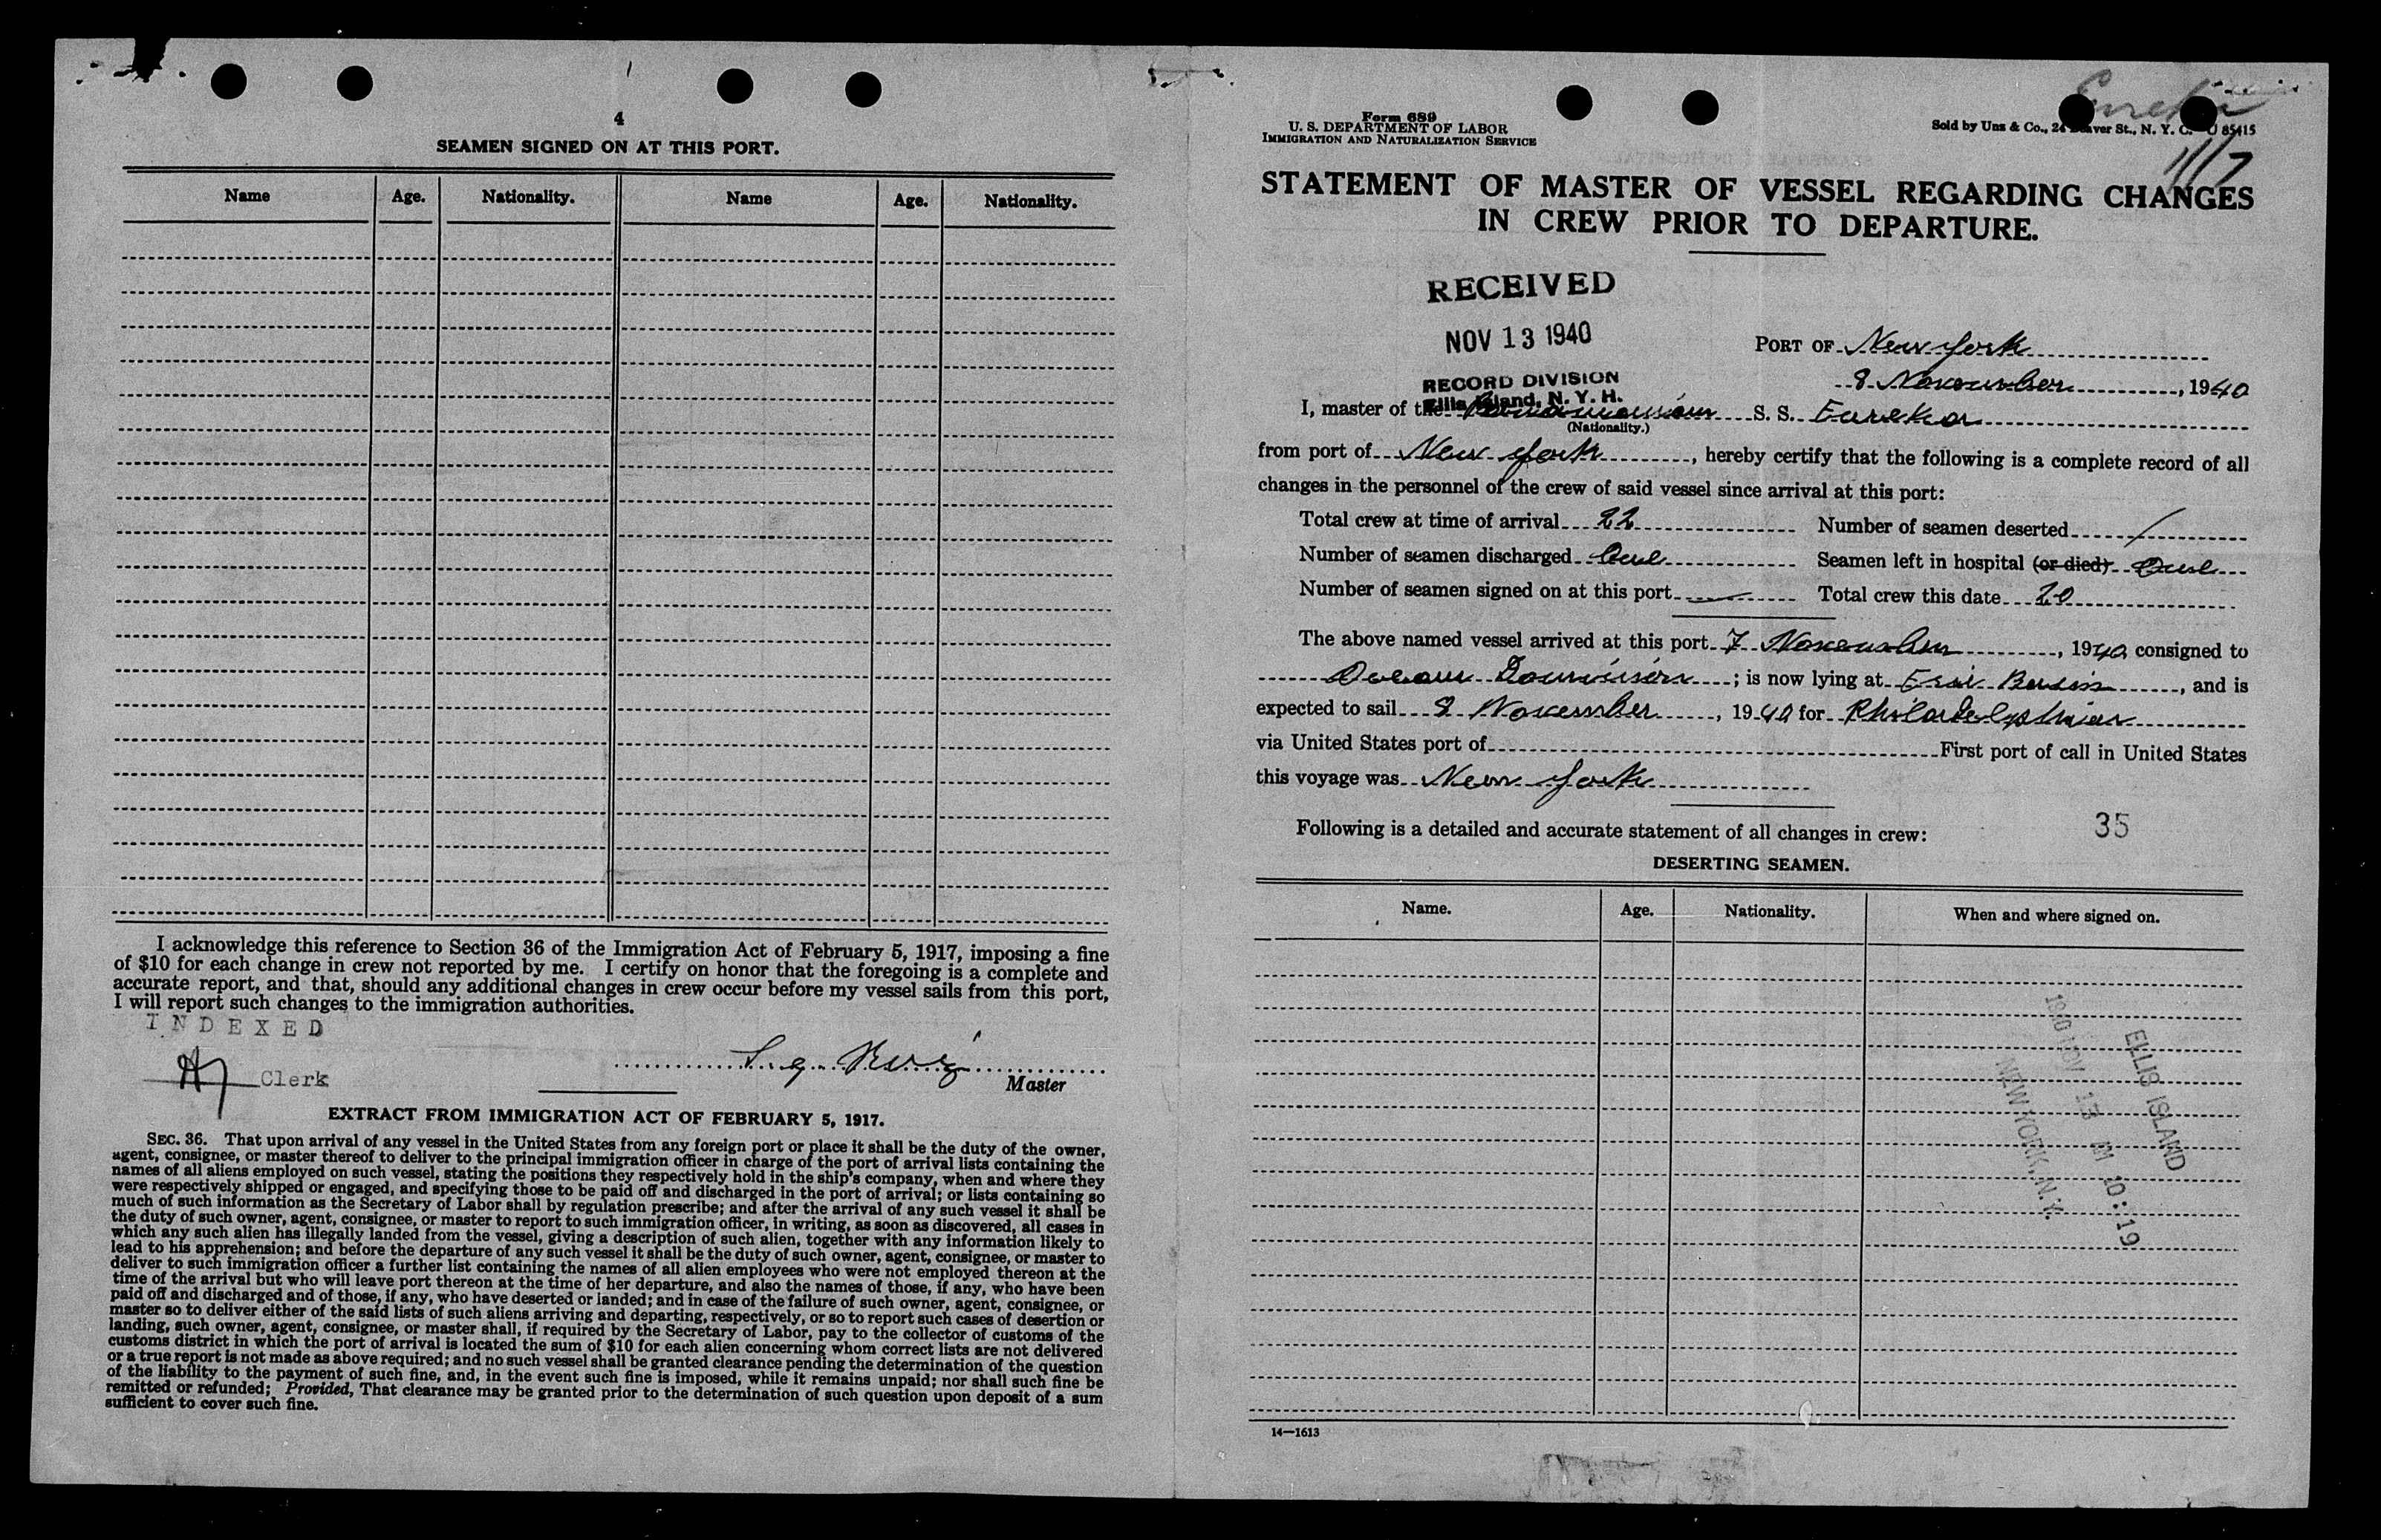 4
SEAMEN SIGNED ON AT THIS PORT.
Name Age. Nationality. Name Age. Nationality.
I acknowledge this reference to Section 36 of the Immigration Act of February 5, 1917, imposing a fine
of $10 for each change in crew not reported by me. I certify on honor that the foregoing is a complete and
accurate report, and that, should any additional changes in crew occur before my vessel sails from this port,
I will report such changes to the immigration authorities.
INDEXED
Clerk
Master
EXTRACT FROM IMMIGRATION ACT OF FEBRUARY 5, 1917.
SEC. 36. That upon arrival of any vessel in the United States from any foreign port or place it shall be the duty of the owner,
agent, consignee, or master thereof to deliver to the principal immigration officer in charge of the port of arrival lists containing the
names of all aliens employed on such vessel, stating the positions they respectively hold in the ship's company, when and where they
were respectively shipped or engaged, and specifying those to be paid off and discharged in the port of arrival; or lists containing so
much of such information as the Secretary of Labor shall by regulation prescribe; and after the arrival of any such vessel it shall be
the duty of such owner, agent, consignee, or master to report to such immigration officer, in writing, as soon as discovered, all cases in
which any such alien has illegally landed from the vessel, giving a description of such alien, together with any information likely to
lead to his apprehension; and before the departure of any such vessel it shall be the duty of such owner, agent, consignee, or master to
deliver to such immigration officer a further list containing the names of all alien employees who were not employed thereon at the
time of the arrival but who will leave port thereon at the time of her departure, and also the names of those, if any, who have been
paid off and discharged and of those, if any, who have deserted or landed; and in case of the failure of such owner, agent, consignee, or
master so to deliver either of the said lists of such aliens arriving and departing, respectively, or so to report such cases of desertion or
landing, such owner, agent, consignee, or master shall, if required by the Secretary of Labor, pay to the collector of customs of the
customs district in which the port of arrival is located the sum of $10 for each alien concerning whom correct lists are not delivered
or a true report is not made as above required; and no such vessel shall be granted clearance pending the determination of the question
of the liability to the payment of such fine, and, in the event such fine is imposed, while it remains unpaid; nor shall such fine be
remitted or refunded; Provided, That clearance may be granted prior to the determination of such question upon deposit of a sum
sufficient to cover such fine.
Eureka
Form 689
U. S. DEPARTMENT OF LABOR
IMMIGRATION AND NATURALIZATION SERVICE
Sold by Unz & Co., 24 Beaver St., N. Y. C. 85415
11/7
STATEMENT OF MASTER OF VESSEL REGARDING CHANGES
IN CREW PRIOR TO DEPARTURE.
RECEIVED
NOV 13 1940
RECORD DIVISION
Ellis Island, N. Y. H.
PORT OF New York
8 November, 1940
I, master of the Panamanian S. S. Eureka
(Nationality.)
from port of New York, hereby certify that the following is a complete record of all
changes in the personnel of the crew of said vessel since arrival at this port:
Total crew at time of arrival 22 Number of seamen deserted /
Number of seamen discharged One Seamen left in hospital (or died) One
Number of seamen signed on at this port — Total crew this date 20
The above named vessel arrived at this port 7 November, 1940 consigned to
Ocean Dominion; is now lying at Erie Basin, and is
expected to sail 8 November, 1940 for Philadelphia
via United States port of First port of call in United States
this voyage was New York
Following is a detailed and accurate statement of all changes in crew:
35
DESERTING SEAMEN.
Name. Age. Nationality. When and where signed on.
ELLIS ISLAND
1940 NOV 13 AM 10:19
NEW YORK, N.Y.
14—1613